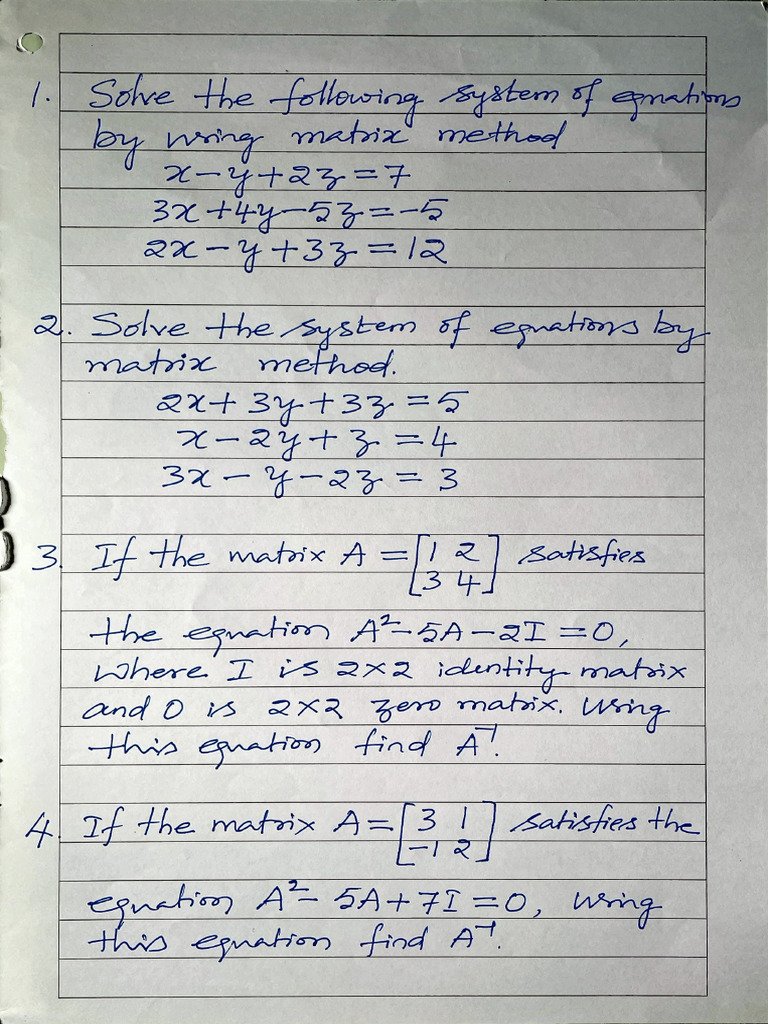 1. Solve the following system of equations
by using matrix method
x-y+2z=7
3x+4y-5z=-5
2x-y+3z=12
2. Solve the system of equations by
matrix method.
2x+3y+3z=5
x-2y+z=4
3x-y-2z=3
3. If the matrix A = [1 2 satisfies
3 4]
the equation A²-5A-2I=0,
where I is 2×2 identity matrix
and 0 is 2×2 zero matrix. Using
this equation find A⁻¹.
4. If the matrix A=[3 1 satisfies the
-1 2]
equation A²-5A+7I=0, using
this equation find A⁻¹.